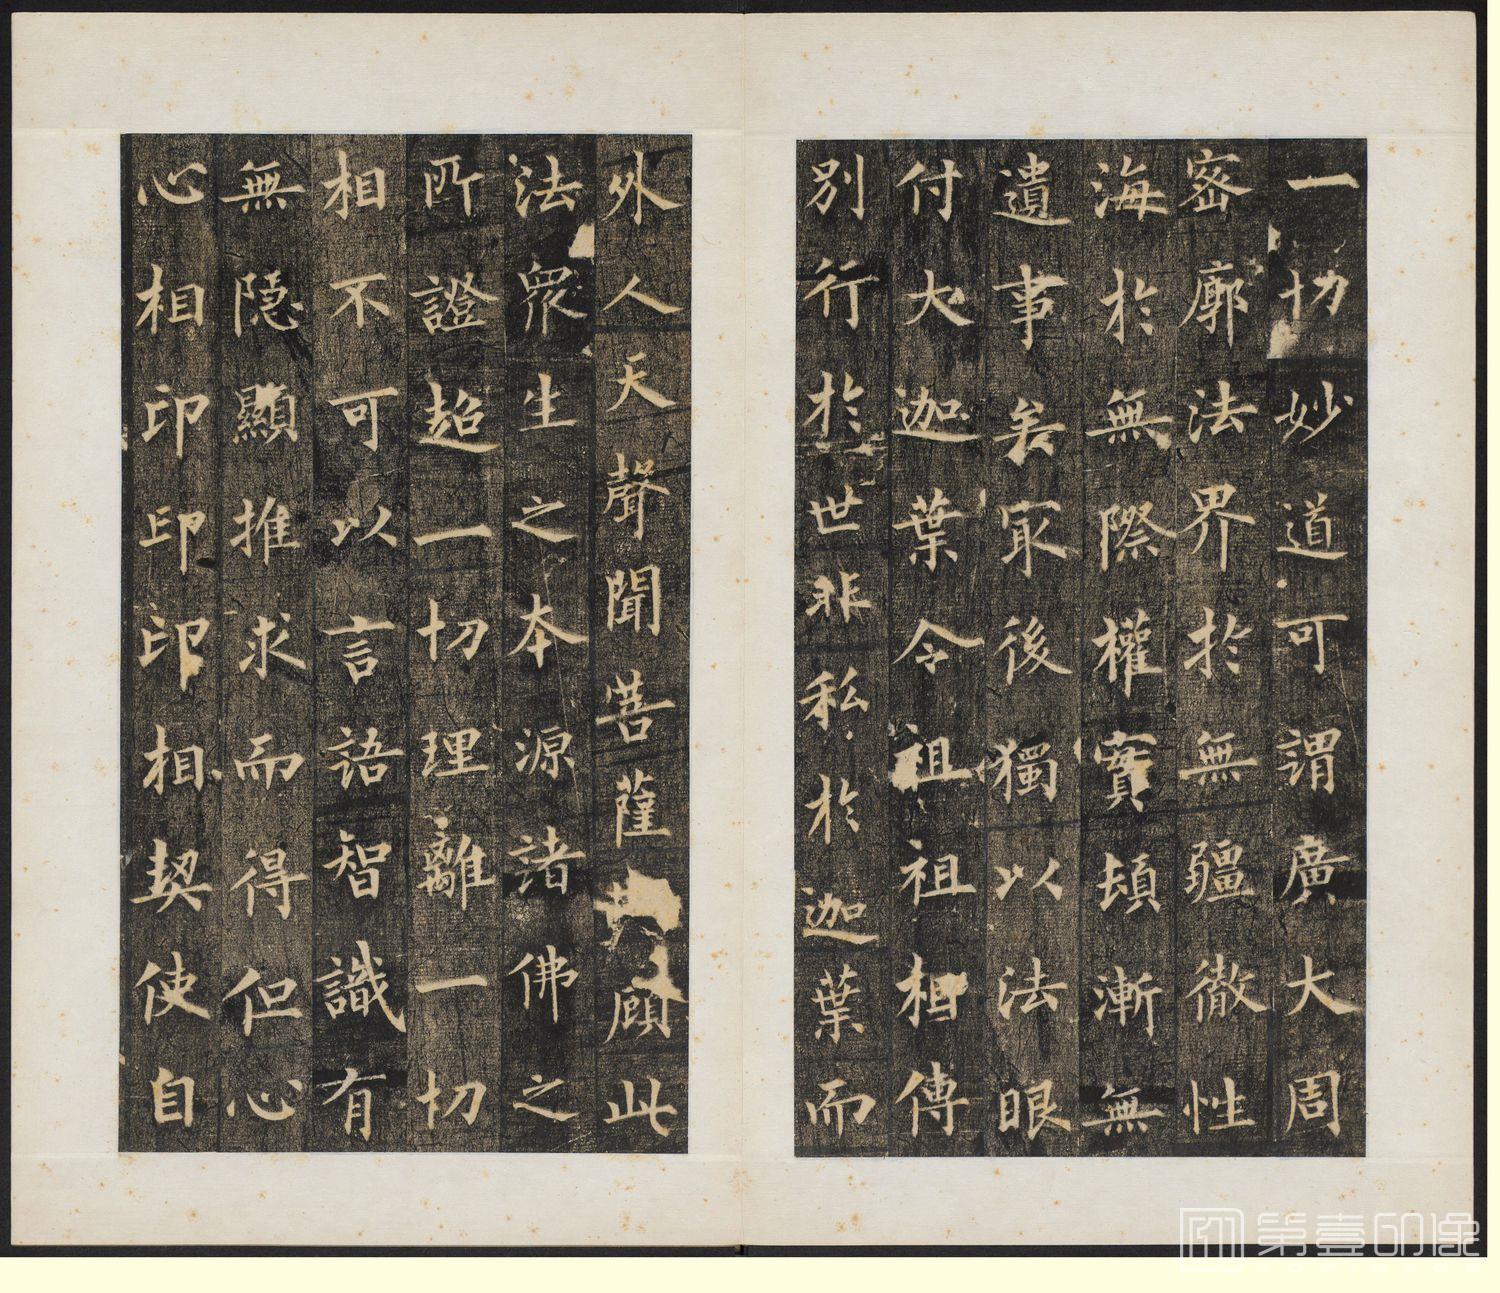 一切妙道可謂廣大周
密廓法界於無疆徹性
海於無際權實頓漸無
遺事矣㝡後獨以法眼
付大迦葉令祖祖相傳
別行於世非私於迦葉而
外人天聲聞菩薩顧此
法衆生之本源諸佛之
所證超一切理離一切
相不可以言語智識有
無隱顯推求而得但心
心相印印印相契使自
第壹印像